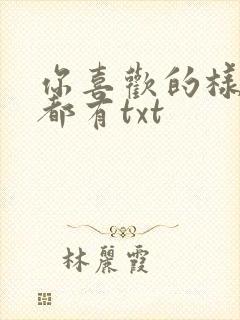 你喜歡的樣
都有txt
林麗霞